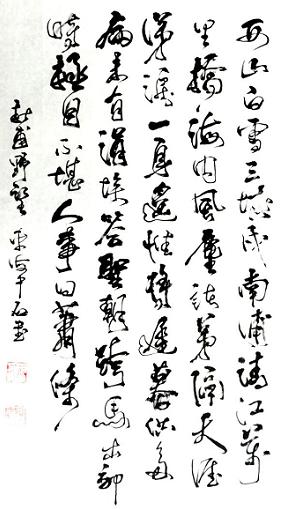 西山白雪三城戍南浦清江萬
里橋海内風塵諸弟隔天涯
涕淚一身遙惟將遲暮供多
病未有涓埃答聖朝跨馬出郊
時極目不堪人事日蕭條
杜甫野望